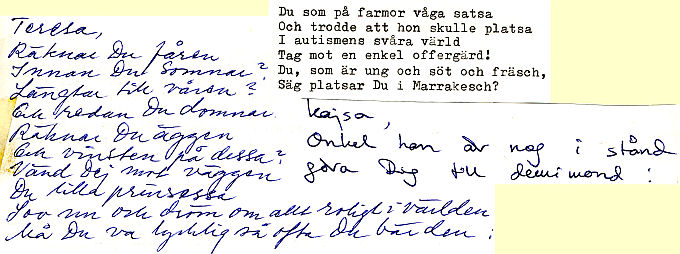 Teresa,
Räknar Du fåren
Innan Du somnar?
Längtar till våren?
Ell redan Du domnar.
Räknar Du äggen
Ell vinsten på dessa?
Vänd dej mot väggen
Du lilla prinsessa
Sov nu och dröm om allt roligt i världen
Må Du va lycklig så ofta Du
Du som på farmor våga satsa
Och trodde att hon skulle platsa
I autismens svåra värld
Tag mot en enkel offergärd!
Du, som är ung och söt och fräsch,
Säg platsar Du i Marrakesch?
Kajsa,
Onkel han är nog i stånd
göra Dig till demimond!